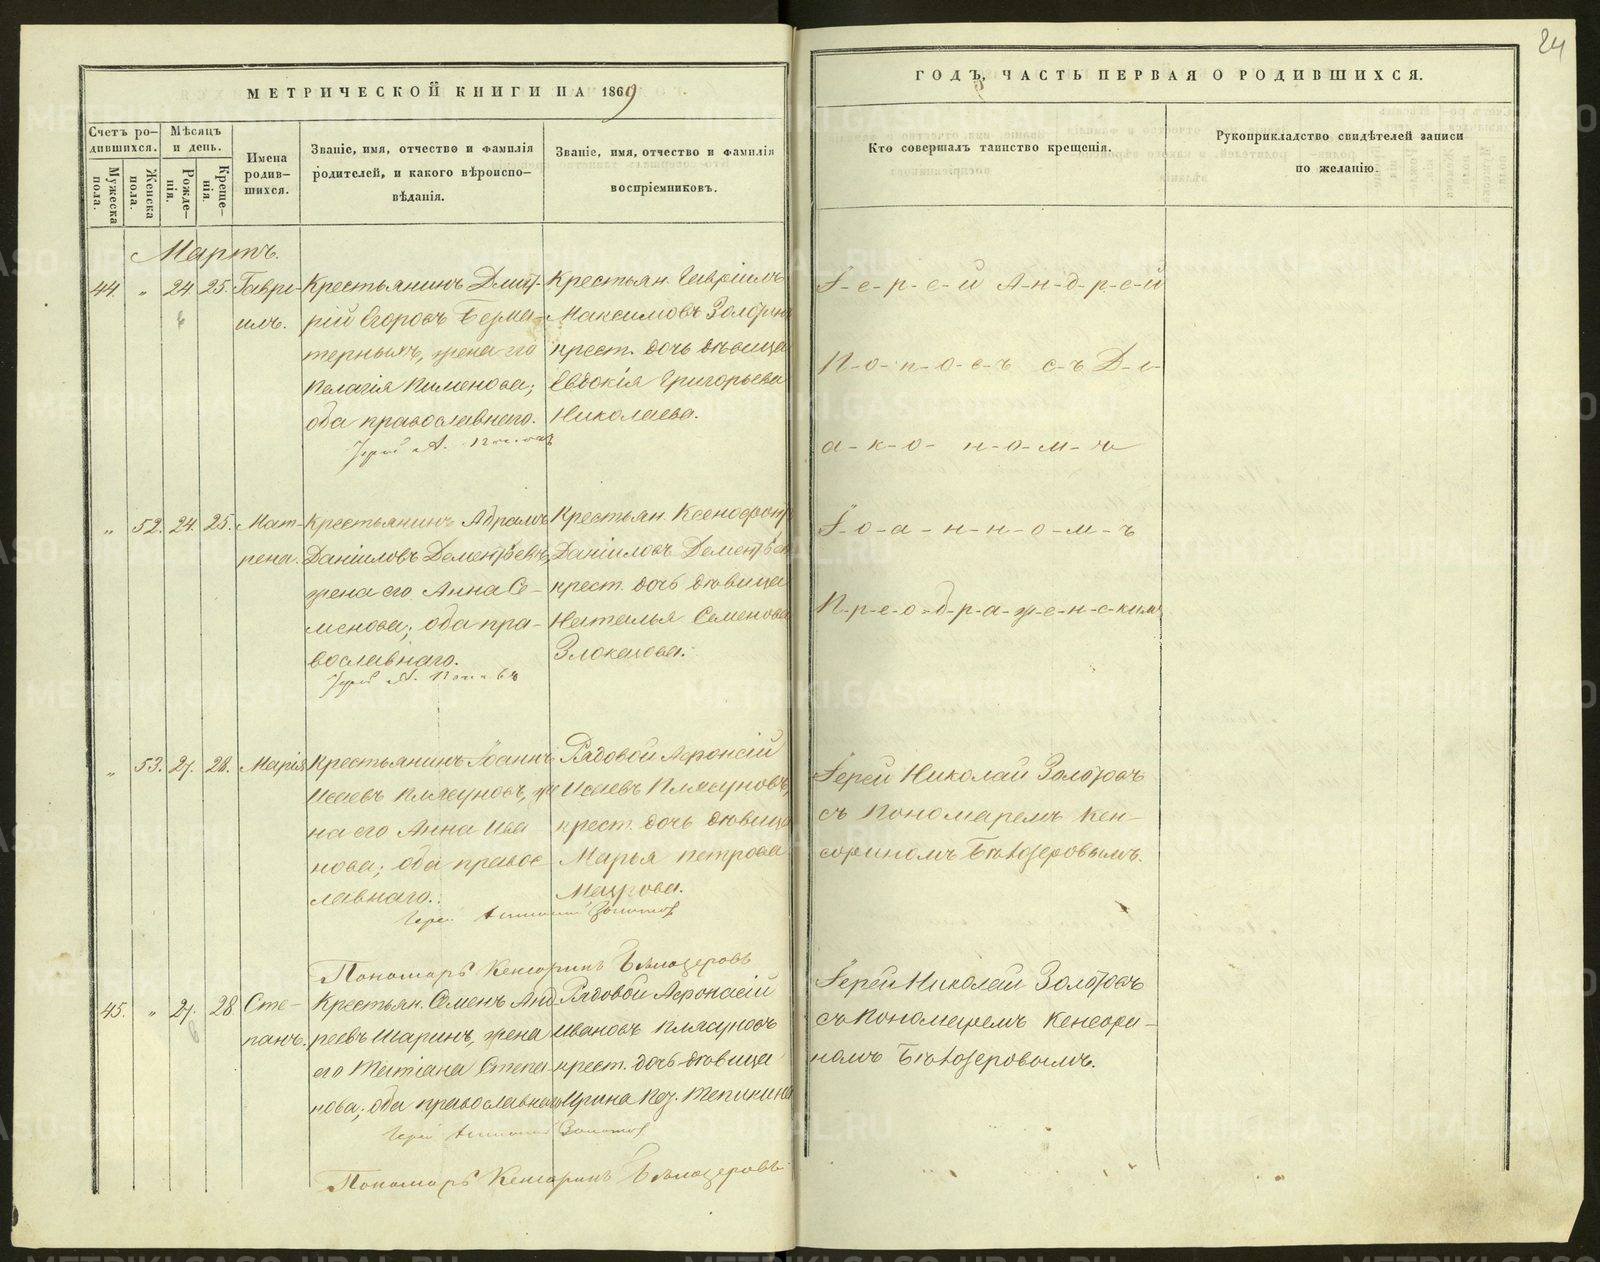 24
МЕТРИЧЕСКОЙ КНИГИ НА 1869
ГОДЪ, ЧАСТЬ ПЕРВАЯ О РОДИВШИХСЯ.
Счетъ родившихся.
Мѣсяцъ и день.
Мужеска пола.
Женска пола.
Рожденія.
Крещенія.
Имена родившихся.
Званіе, имя, отчество и фамилія
родителей, и какого вѣроиспо-
вѣданія.
Званіе, имя, отчество и фамилія
воспріемниковъ.
Кто совершалъ таинство крещенія.
Рукоприкладство свидѣтелей записи
по желанію.
Мартъ.
44. " 24. 25. Гаври-
илъ.
Крестьянинъ Дмит-
рій Егоровъ
жена его
Пелагія Пименова;
оба православнаго.
Крестьян. Гавріилъ
Максимовъ
крест. дочь дѣвица
Евдокія Григорьева
Николаева.
Іерей А. Поповъ
І-е-р-е-й А-н-д-р-е-й
П-о-п-о-в-ъ с-ъ Д-і-
а-к-о-н-о-м-ъ
І-о-а-н-н-о-м-ъ
П-р-е-о-б-р-а-ж-е-н-с-кимъ
" 52. 24. 25. Мат-
рена.
Крестьянинъ Абрамъ
Даніиловъ Дементьевъ,
жена его Анна Се-
менова; оба пра-
вославнаго.
Крестьян. Ксенофонтъ
Даніиловъ Дементьевъ
крест. дочь дѣвица
Наталья Семенова
Злоказова.
Іерей А. Поповъ
" 53. 27. 28. Марія
Крестьянинъ Іоаннъ
Исаевъ Плясуновъ, же
на его Анна Ива
нова; оба правос
лавнаго.
Рядовой Афонасій
Исаевъ Плясуновъ,
крест. дочь дѣвица
Марья Петрова
Мазрова.
Іерей Николай Золотовъ
Пономарь Кенсоринъ Бѣлозеровъ
Іерей Николай Золотовъ
съ Пономаремъ Кен-
сориномъ Бѣлозеровымъ.
45. " 27. 28. Сте-
панъ.
Крестьян. Семенъ Анд
реевъ Шаринъ, жена
его Татіана Степа
нова; оба православнаго
Рядовой Афонасій
Ивановъ Плясуновъ
крест. дочь дѣвица
Ирина
Іерей Николай Золотовъ
Пономарь Кенсоринъ Бѣлозеровъ
Іерей Николай Золотовъ
съ Пономаремъ Кенсори-
номъ Бѣлозеровымъ.
METRIKI.GASO-URAL.RU